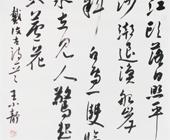 江頭落日照平
沙潮退漁船閣岸
斜白鳥一雙臨
水立見人驚起
入蘆花
戴復古詩